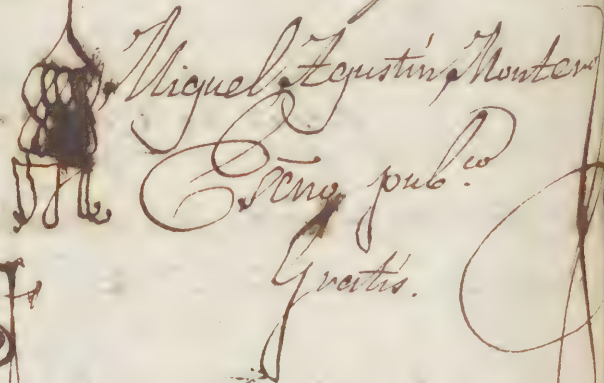 Miguel Agustín Montero
Esčno pub.co
Gratis.